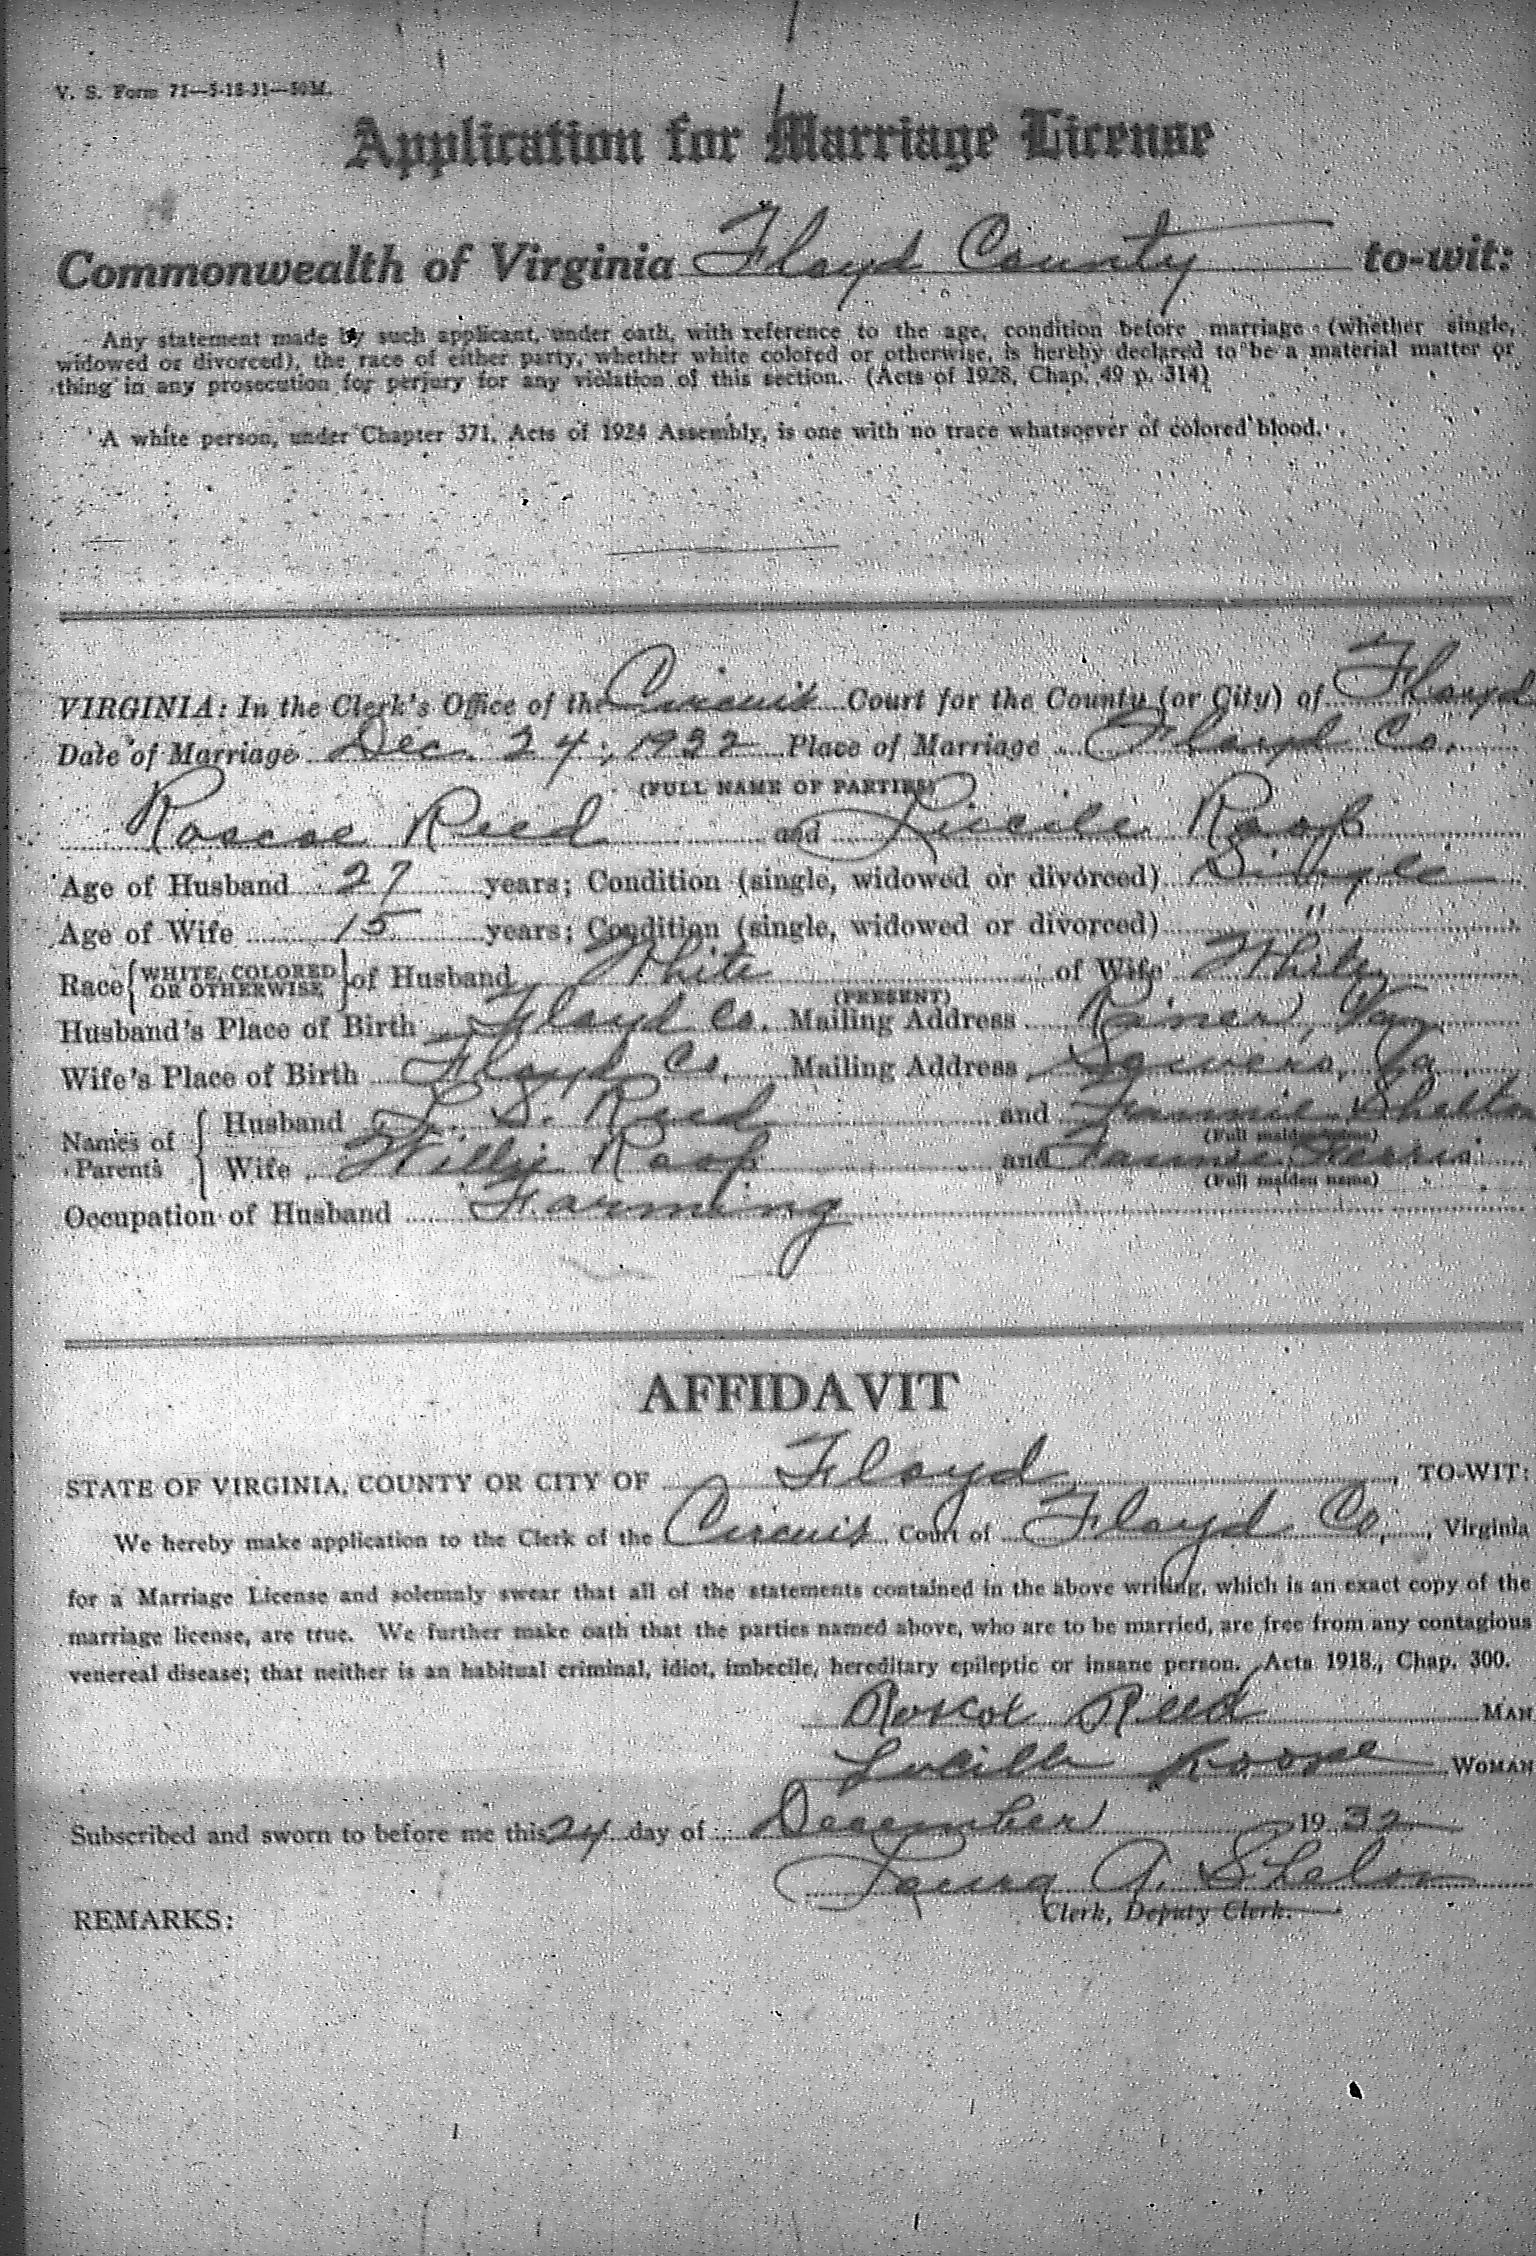 V. S. Form 71—5-18-31—50M.
Application for Marriage License
Commonwealth of Virginia Floyd County to-wit:
Any statement made by such applicant, under oath, with reference to the age, condition before marriage (whether single,
widowed or divorced), the race of either party, whether white colored or otherwise, is hereby declared to be a material matter or
thing in any prosecution for perjury for any violation of this section. (Acts of 1928, Chap. 49 p. 314)
A white person, under Chapter 371, Acts of 1924 Assembly, is one with no trace whatsoever of colored blood.
VIRGINIA: In the Clerk's Office of the Circuit Court for the County (or City) of Floyd
Date of Marriage Dec. 24, 1932 Place of Marriage Floyd Co.
(FULL NAME OF PARTIES)
Roscoe Reed and Lucile Roop
Age of Husband 27 years; Condition (single, widowed or divorced) Single
Age of Wife 15 years; Condition (single, widowed or divorced) "
Race {WHITE, COLORED OR OTHERWISE} of Husband White of Wife White
Husband's Place of Birth Floyd Co. (PRESENT) Mailing Address Va.
Wife's Place of Birth Floyd Co. Mailing Address Sowers, Va.
Names of Parents { Husband L. S. Reed and Fannie Shelton
(Full maiden name)
Wife Willie Roop and Fannie Ferris
(Full maiden name)
Occupation of Husband Farming
AFFIDAVIT
STATE OF VIRGINIA, COUNTY OR CITY OF Floyd, TO-WIT:
We hereby make application to the Clerk of the Circuit Court of Floyd Co., Virginia
for a Marriage License and solemnly swear that all of the statements contained in the above writing, which is an exact copy of the
marriage license, are true. We further make oath that the parties named above, who are to be married, are free from any contagious
venereal disease; that neither is an habitual criminal, idiot, imbecile, hereditary epileptic or insane person. Acts 1918., Chap. 300.
Roscoe Reed MAN
Lucille Roope WOMAN
Subscribed and sworn to before me this 24 day of December 1932
Laura A. Shelor
Clerk, Deputy Clerk.
REMARKS: